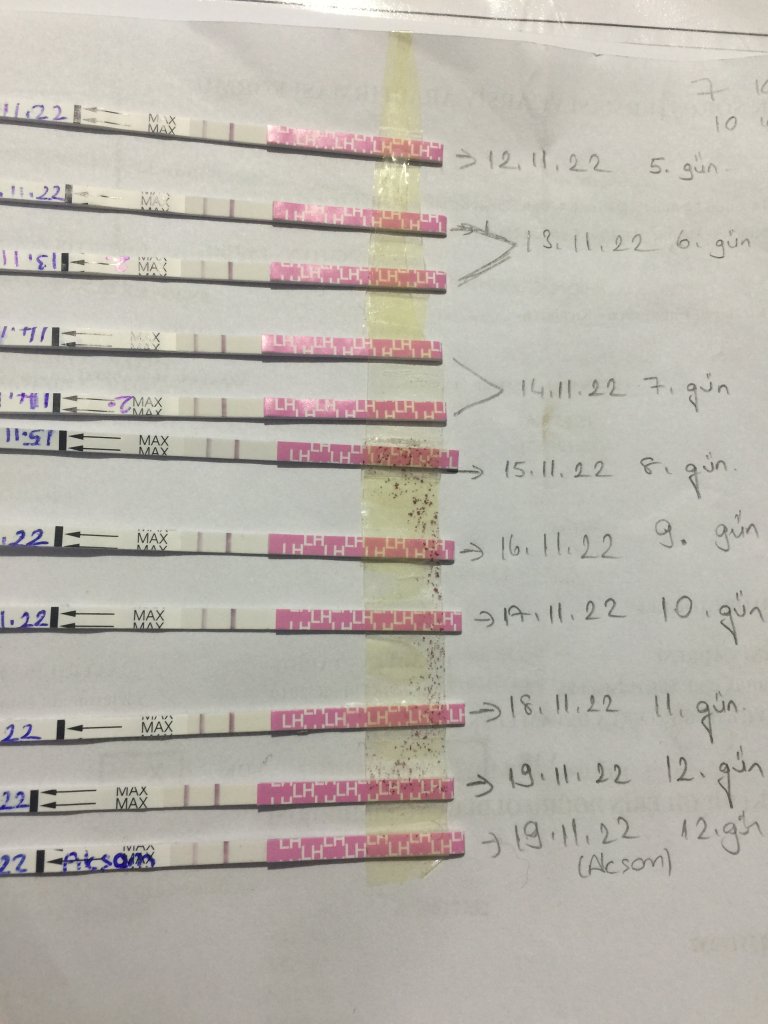 11.22 MAX MAX LH LH LH LH LH
7
10
→ 12.11.22 5. gün
.11.22 MAX MAX LH LH LH LH LH
→ 13.11.22 6. gün
13.11 2. MAX MAX LH LH LH LH LH
14.1 MAX MAX LH LH LH LH LH
14.11.22 7. gün
14.1 2. MAX MAX LH LH LH LH LH
15.11 MAX MAX LH LH LH LH LH
→ 15.11.22 8. gün.
.22 MAX MAX LH LH LH LH LH
→ 16.11.22 9. gün
1.22 MAX MAX LH LH LH LH LH
→ 17.11.22 10. gün
22 MAX MAX LH LH LH LH LH
→ 18.11.22 11. gün.
22 MAX MAX LH LH LH LH LH
→ 19.11.22 12. gün
22 Akşam MAX MAX LH LH LH LH LH
→ 19.11.22 12. gün
(Akşam)